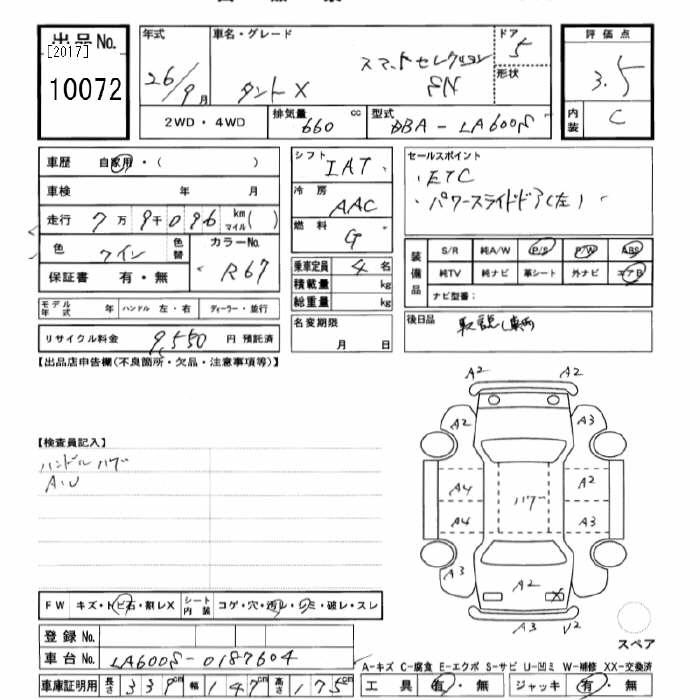 出品 No.
[2017]
10072
年式
26/9月
車名・グレード
タントX
スマートセレクション
SN
ドア
5
形状
評価点
3.5
内装
C
2WD・4WD
排気量
660 cc
型式
DBA-LA600S
車歴 自家用・( )
車検 年 月
走行 7万9千096 km マイル( )
色 ワイン 色替
カラーNo.
R67
保証書 有・無
モデル年式 年 ハンドル 左・右 ディーラー・並行
リサイクル料金 9,550 円 預託済
シフト IAT
冷房 AAC
燃料 G
乗車定員 4 名
積載量 kg
総重量 kg
名変期限
月 日
セールスポイント
・ETC
・パワースライドドア(左)
装備品
S/R 純A/W P/S P/W ABS
純TV 純ナビ 革シート 外ナビ エアB
ナビ型番:
後日品
取説(車両
【出品店申告欄(不良箇所・欠品・注意事項等)】
【検査員記入】
ハンドル ハゲ
A・U
A2 A2
A2 A3
A4 A2
ハゲ
A4 A3
A3 A2 X
A3 U2
スペア
FW キズ・トビ石・割レX
シート内装 コゲ・穴・汚レ・シミ・破レ・スレ
登録 No.
車台 No. LA600S-0187604
車庫証明用 長さ 339cm 幅 147cm 高さ 175cm
A-キズ C-腐食 E-エクボ S-サビ U-凹ミ W-補修 XX-交換済
工具 有・無 ジャッキ 有・無